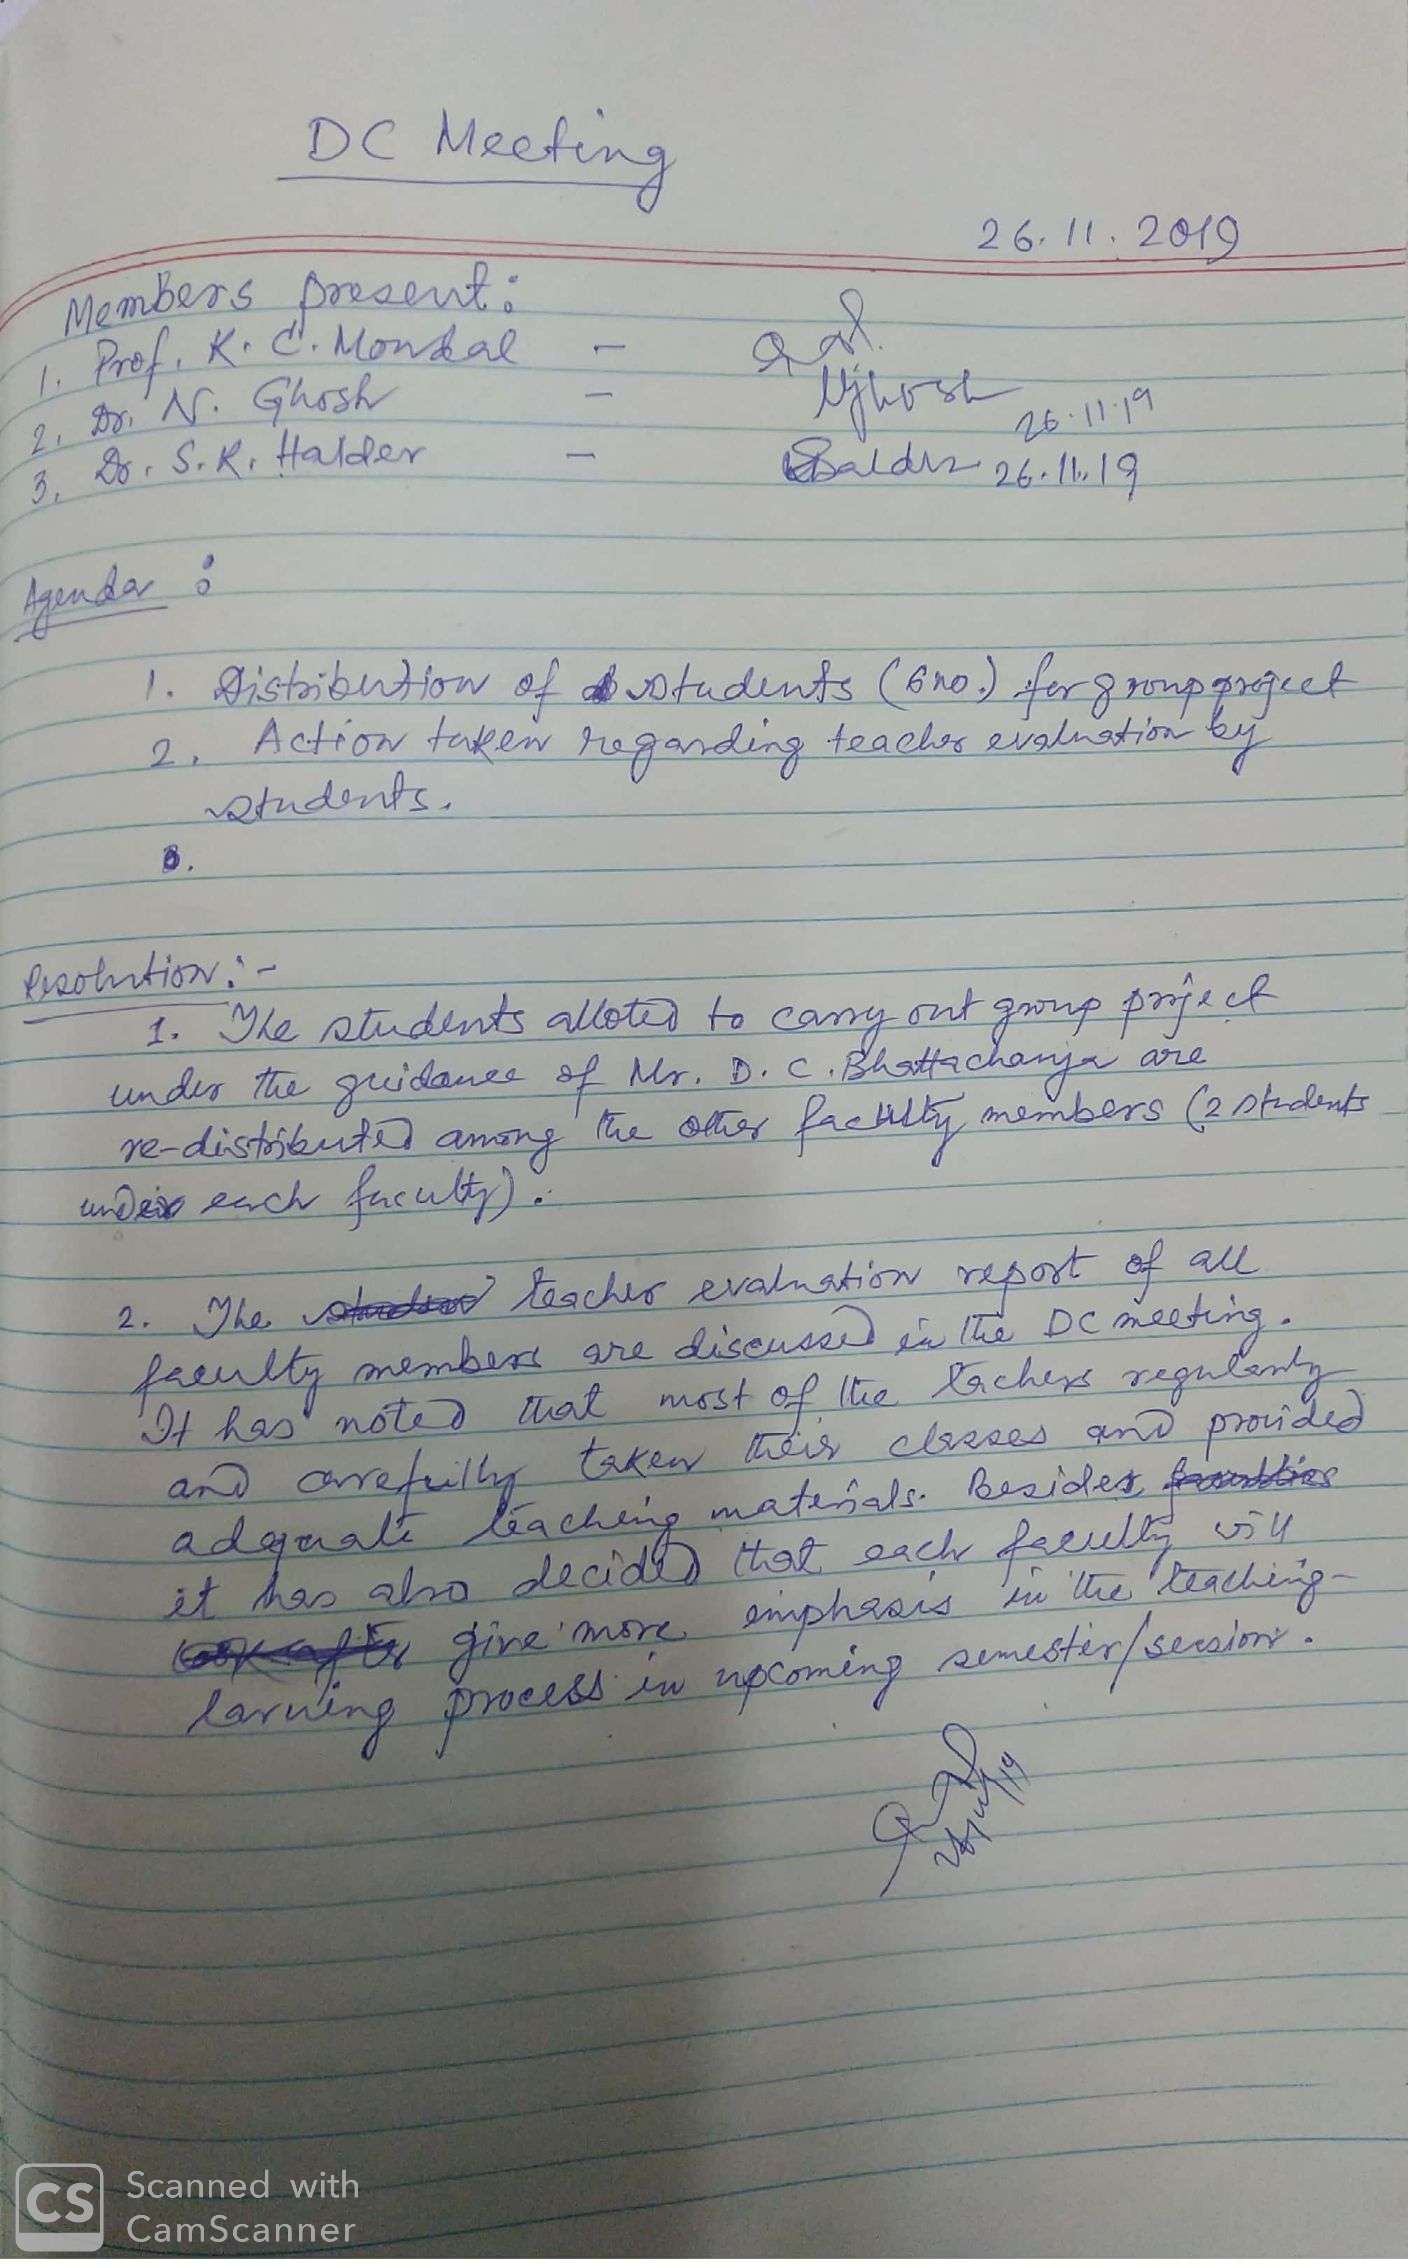 DC Meeting
26.11.2019
Members present:
1. Prof. K. C. Mondal -
2. Dr. N. Ghosh - NGhosh 26.11.19
3. Dr. S.K. Halder - Halder 26.11.19
Agenda :
1. Distribution of students (6 no.) for group project
2. Action taken regarding teacher evaluation by
students.
3.
Resolution:-
1. The students alloted to carry out group project
under the guidance of Mr. D. C. Bhattacharjya are
re-distributed among the other faculty members (2 students
under each faculty).
2. The teacher evaluation report of all
faculty members are discussed in the DC meeting.
It has noted that most of the tachers regularly
and carefully taken their classes and provided
adequate teaching materials. Besides
it has also decided that each faculty will
give more emphasis in the teaching-
larning process in upcoming semester/session.
CS Scanned with
CamScanner